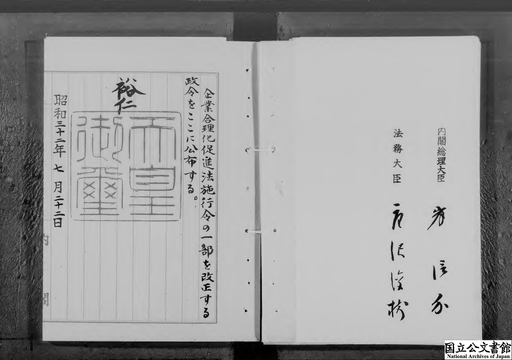 内閣総理大臣 岸信介
法務大臣 唐沢俊樹
企業合理化促進法施行令の一部を改正する
政令をここに公布する。
裕仁
天皇
御璽
昭和三十二年七月二十二日
内閣
国立公文書館
National Archives of Japan